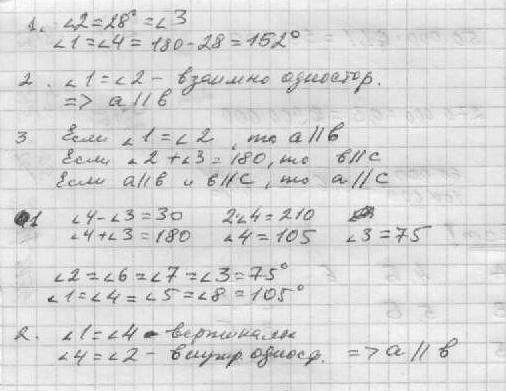 1. ∠2=28°=∠3
∠1=∠4=180-28=152°
2. ∠1=∠2 - взаимно одностор.
=> a∥b
3 Если ∠1=∠2, то a∥b
Если ∠2+∠3=180, то b∥c
Если a∥b и b∥c, то a∥c
1 ∠4-∠3=30 2∠4=210
∠4+∠3=180 ∠4=105 ∠3=75
∠2=∠6=∠7=∠3=75°
∠1=∠4=∠5=∠8=105°
2. ∠1=∠4 - вертикальн
∠4=∠2 - внутр одност. => a∥b